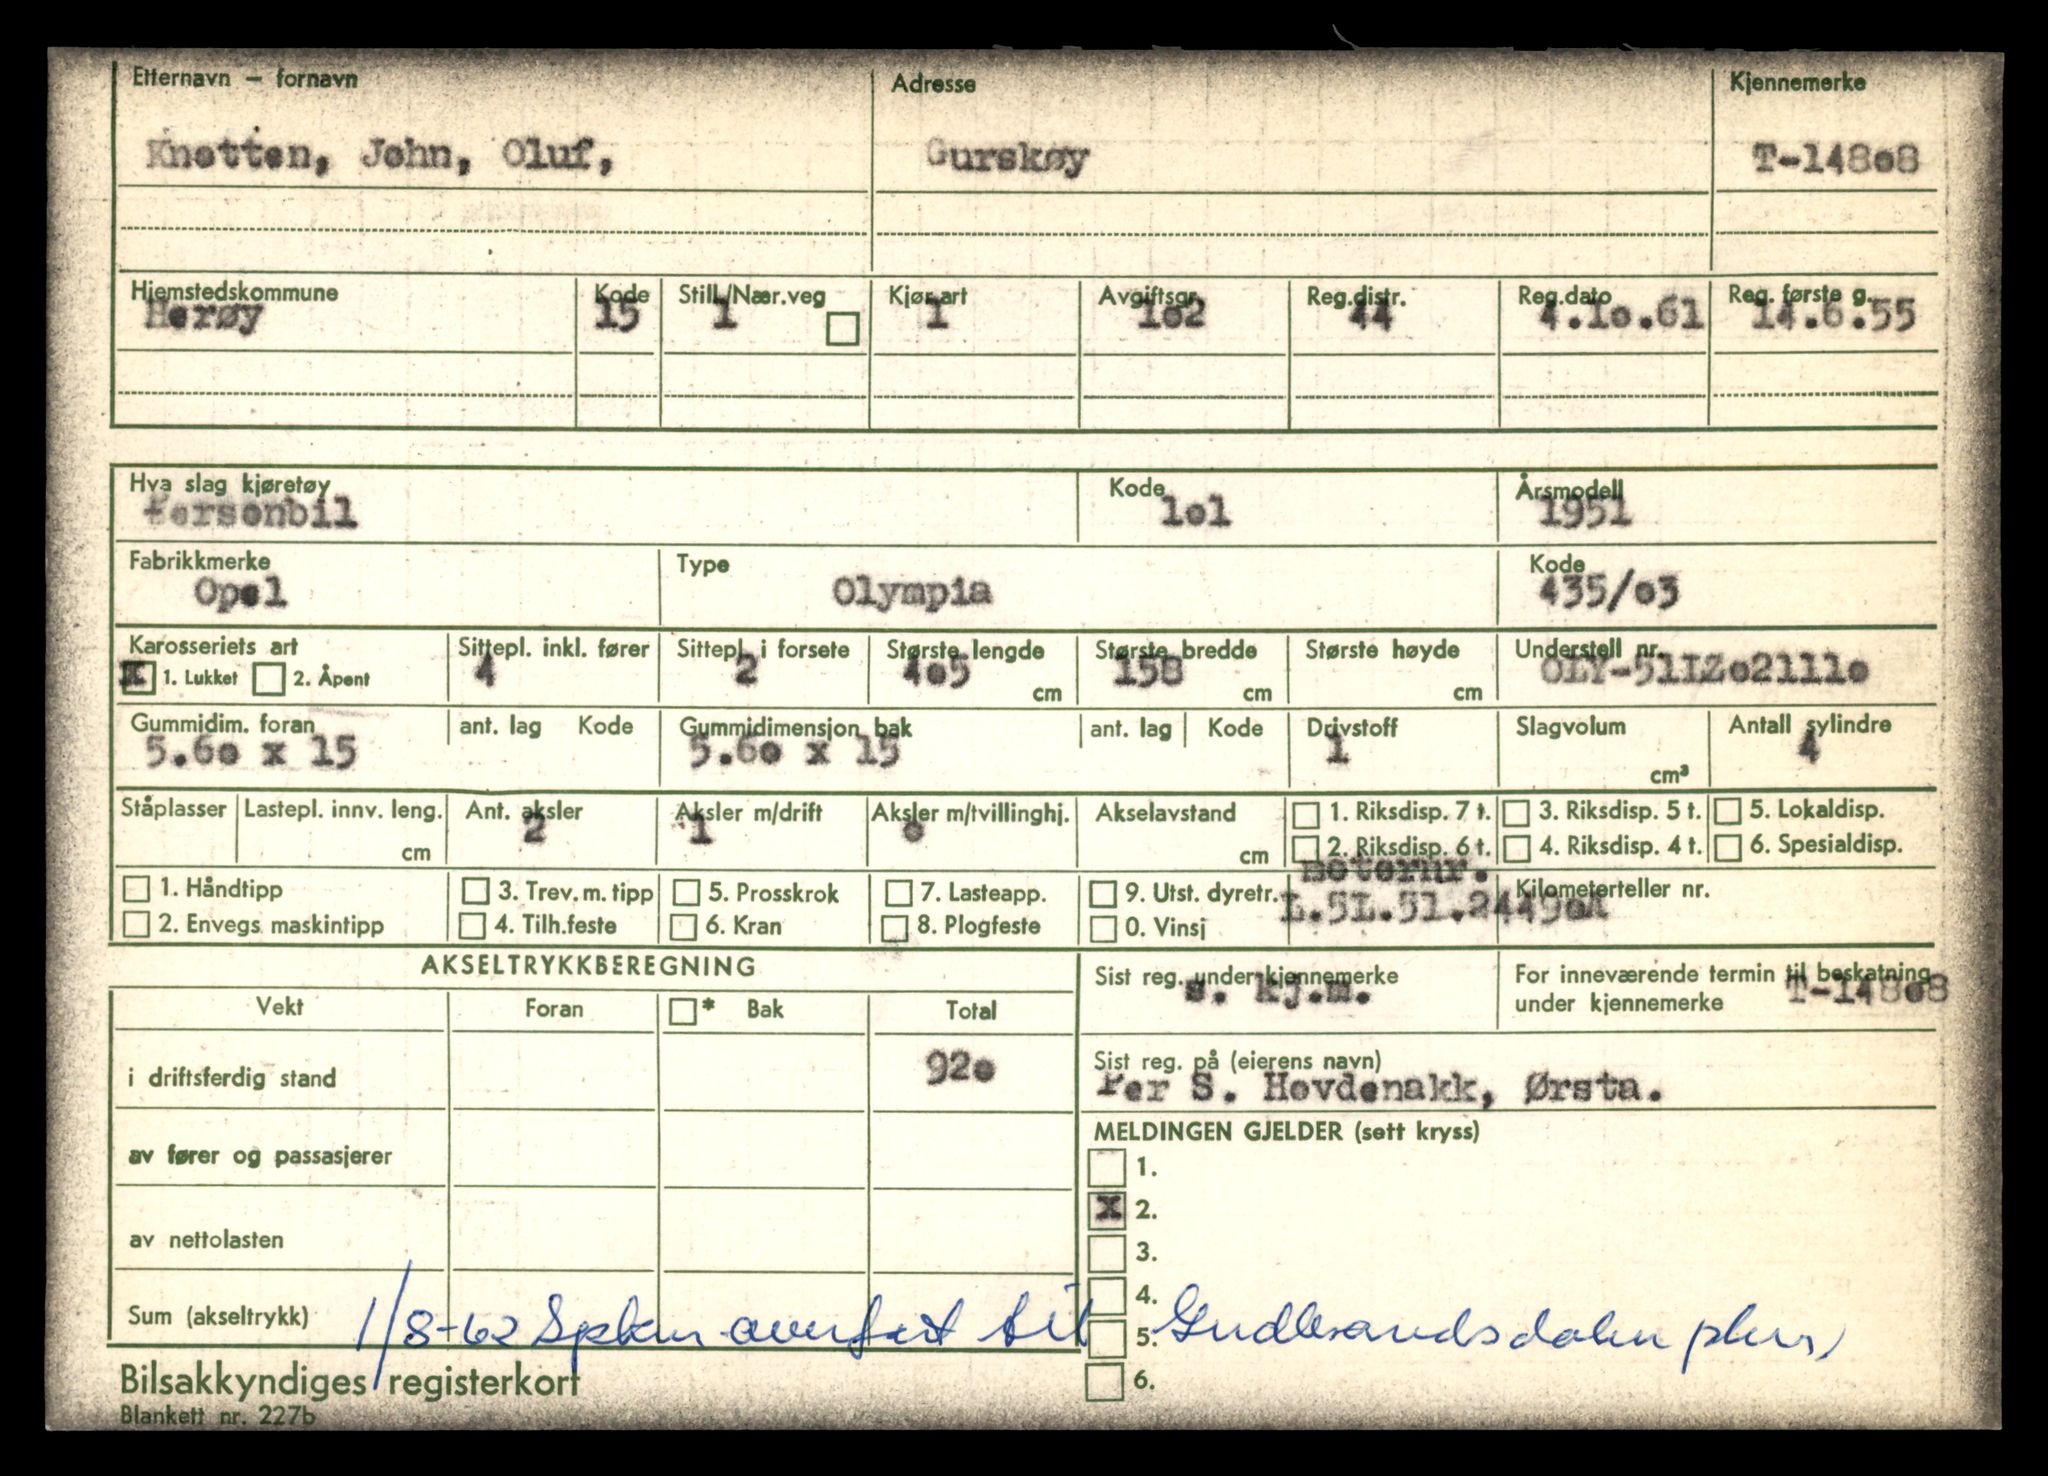 Etternavn – fornavn Adresse Kjennemerke
Knotten, John, Oluf, Gurskøy T-148o8
Hjemstedskommune Kode Still./Nær.veg Kjør.art Avgiftsgr. Reg.distr. Reg.dato Reg. første g.
Herøy 15 1 1 1o2 44 4.1o.61 14.6.55
Hva slag kjøretøy Kode Årsmodell
Personbil 1o1 1951
Fabrikkmerke Type Kode
Opel Olympia 435/o3
Karosseriets art Sittepl. inkl. fører Sittepl. i forsete Største lengde Største bredde Største høyde Understell nr.
X 1. Lukket 2. Åpent 4 2 4o5 cm 158 cm cm OLY-51IZo2111o
Gummidim. foran ant. lag Kode Gummidimensjon bak ant. lag Kode Drivstoff Slagvolum Antall sylindre
5.6o x 15 5.6o x 15 1 cm³ 4
Ståplasser Lastepl. innv. leng. Ant. aksler Aksler m/drift Aksler m/tvillinghj. Akselavstand 1. Riksdisp. 7 t. 3. Riksdisp. 5 t. 5. Lokaldisp.
cm 2 1 o cm 2. Riksdisp. 6 t. 4. Riksdisp. 4 t. 6. Spesialdisp.
Motornr.
1. Håndtipp 3. Trev. m. tipp 5. Prosskrok 7. Lasteapp. 9. Utst. dyretr. Kilometerteller nr.
L.5L.51.2449oA
2. Envegs maskintipp 4. Tilh.feste 6. Kran 8. Plogfeste 0. Vinsj
AKSELTRYKKBEREGNING Sist reg. under kjennemerke For inneværende termin til beskatning
under kjennemerke
s. kj.m. T-148o8
Vekt Foran * Bak Total
i driftsferdig stand 92o
Sist reg. på (eierens navn)
Per S. Hovdenakk, Ørsta.
av fører og passasjerer
MELDINGEN GJELDER (sett kryss)
1.
X 2.
av nettolasten
3.
4.
Sum (akseltrykk)
1/8-62 overført til Gudbrandsdalen
5.
6.
Bilsakkyndiges registerkort
Blankett nr. 227b